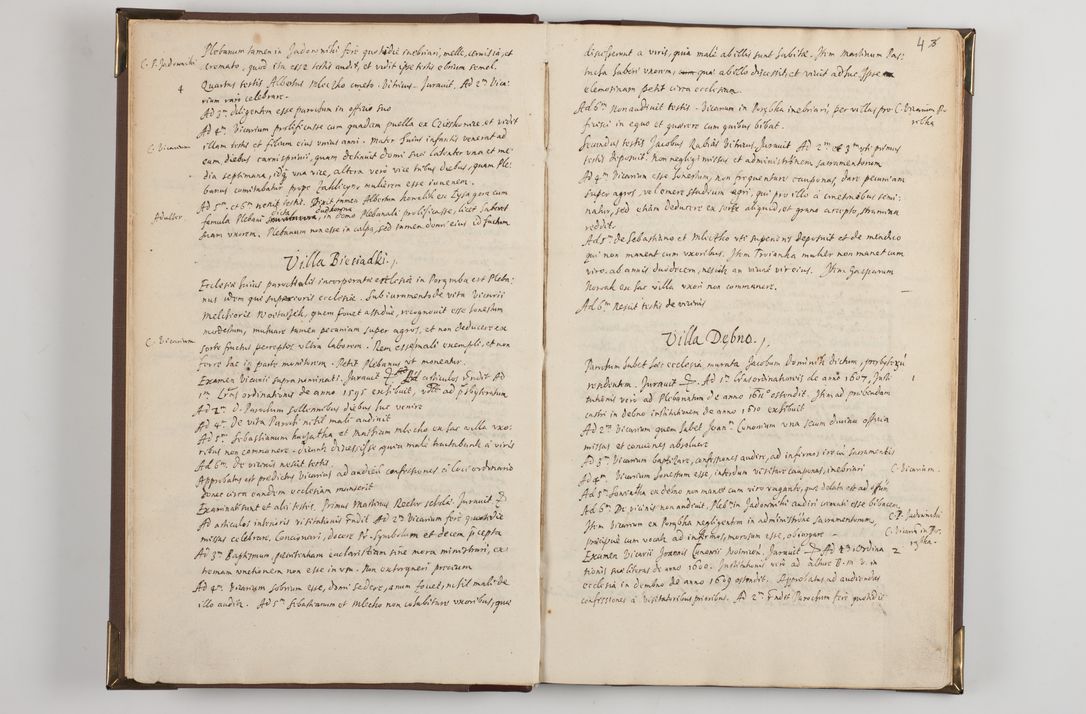 Plebanum tamen in Jadowniki fere quotidie inebriari, melle, cervisia, et
C. P. Jadowniki
cremato, quod ita esse testis audit, et vidit ipse testis ebrium semel.
4
Quartus testis Albertus Mlecko cmeto. Vitricus. Juravit. Ad 2m Vica-
rium raro celebrare.
Ad 3m diligentem esse parochum in officio suo
Ad 4m Vicarium prolificasse cum quadam puella ex et vidit
C. Vicarium
illam testis et filium eius unius anni. Mater huius infantis venerat ad
eum diebus carnisprivii, quam detinuit domi suae latenter una et me-
dia septimana, idq una vice, altera vero vice tribus diebus, quam Ple-
banus comitabatur prope Zakliczyn, mulierem esse iuvenem.
Ad 5m et 6m nescit testis. Dixit tamen Albertum homalik ex Lysagora cum
Adulter.
famula Plebani dicta in domo Plebanali prolificasse, licet haberet
suam uxorem. Plebanum non esse in culpa, sed tamen domi eius id factum
Villa Biesiadki.
Ecclesia huius parochialis incorporatae ecclesiae in Porąmba est Pleba-
nus idem qui superioris ecclesiae. Sub iuramento de vita Vicarii
Melchioris quem fovet assidue, recognovit esse honestum
modestum, mutuare tamen pecuniam super agros, et non deducere ex
C. Vicarium
sorte fructus perceptos ultra laborem. Rem esse mali exempli, et non
ferre hac in parte monitorem. Petit Plebanus ut moneatur.
Examen Vicarii supra nominati. Juravit articulos Rndit Ad
1m Lras ordinationis de anno 1595 exhibuit, ad psbyteratum
Ad 2m D. Parochum sollemnibus diebus huc venire
Ad 4m De vita Parochi nihil mali audivit
Ad 5m Sebastianum et Mathiam Mlecho ex hac villa uxo-
ribus non commanere. dicunt discessisse quia male tractabantur a viris
Ad 6m De vicinis nescit testis.
Approbatus est predictus Vicarius ad audiendas confessiones a loci ordinario
donec circa eandem ecclesiam manserit
Examinati sunt et alii testes. Primus Mathias Rector scholae. Juravit
Ad articulos interioris visitationis Rndit Ad 2m Vicarium fere quotidie
missas celebrare, Concionari, docere Pr. Symbolum et decem pcepta
Ad 3m Baptismum, penitentiam eucharistiam sine mora ministrari, ex-
tremam unctionem non esse in usu. Non extraneri precium
Ad 4m Vicarium sobrium esse, domi sedere, anum fovet, nihil mali de
illo audit. Ad 5m Sebastianum et Mlecho non cohabitare uxoribus, quae
4
discesserunt a viris, quia male ab illis sunt habitae. Item Martinum Pas-
tucha habere uxorem, quae ab illo discessit et vivit adhuc. Ipse
elemosinam petit circa ecclesiam.
Ad 6m Non audivit testis. Vicarium in Porębka inebriari, per villas pro-
C. Vicarium P-
rębka
ficisci in equo et quaerere cum quibus bibat.
Secundus testis Jacobus Rabias Vitricus. Juravit. Ad 2m et 3m uti primus
testis deposuit. Non negligi missas et administronem sacramentorum
Ad 4m Vicarium esse honestum, non frequentare cauponas, dare pecuniam
super agros, vel omere stadium agri, qui pro illo a cmethonibus semi-
natur, sed etiam deducere ex sorte aliquid, et grano accepto, stramina
reddit.
Ad 5m De Sebastiano et Mlechto uti superius deposuit et de mendico
qui non manent cum uxoribus. Item Troianka mulier non manet cum
viro ab annis duodecem, nescit an vivat vir eius. Item Gasparum
Novak ex hac villa uxori non commanere.
Ad 6m Nescit testis de vicinis
Villa Debno.
Parochum habet haec ecclesia murata Jacobum Dominik dictum, presbyterum
rendentem. Juravit Ad 1m Lras ordinationis de anno 1607, Insti-
1
tutionis vero ad Plebanatum de anno 1616 ostendit. Item ad prebendam
castri in Debno institutionem de anno 1610 exhibuit
Ad 2m Vicarium quem habet Joanm. Canonium una secum divina officia
missas et conciones absolvere
Ad 3m Vicarium baptizare, confessiones audire, ad infirmos ire cum sacramentis
Ad 4m Vicarium honestum esse, interdum visitare cauponas, inebriari
C. Vicarium.
Ad 5m ex Debno non manet cum viro vagante, quae delata est ad offium
Ad 6m De vicinis non audivit. Plebm in Jadowniki audivi cremati esse bibacem
C. P. Jadowniki
Item Vicarium ex Porąbka negligentem in administratione sacramentorum,
C. Vicarm in Po-
rąbka.
praecipue cum vocatur ad infirmos, morosum esse, obiurgare.
Examen Vicarii Joannis Canonii Juravit Ad 4m ordina-
2
tionis suae literas de anno 1600. Institutionis vero ad altare B. M. V. in
ecclesia in Dembno de anno 1609 ostendit. Approbatus ad audiendas
confessiones a visitatoribus prioribus. Ad 2m Rndit Parochum fere quotidie